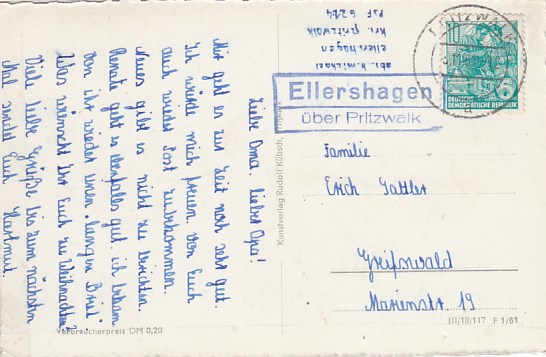 Liebe Oma! Lieber Opa!
Mir geht es zur Zeit noch sehr gut.
Ich würde mich freuen von Euch
auch wieder Post zu bekommen.
Neues gibt es nicht zu berichten.
Renate geht es ebenfalls gut. ich bekam
von ihr wieder einen "langen Brief".
Was wünscht Ihr Euch zu Weihnachten?
Viele liebe Grüße bis zum nächsten
Mal sendet Euch Hartmut.
Verbraucherpreis DM 0,20
Kunstverlag Rudolf Kübsch,
abs. h. michael
ellershagen
krs. pritzwalk
PSF 6214
PRITZWALK
10
DEUTSCHE
DEMOKRATISCHE REPUBLIK
Ellershagen
über Pritzwalk
Familie
Erich Sattler
Greifswald
Marienstr. 19
III/18/117 F 1/61